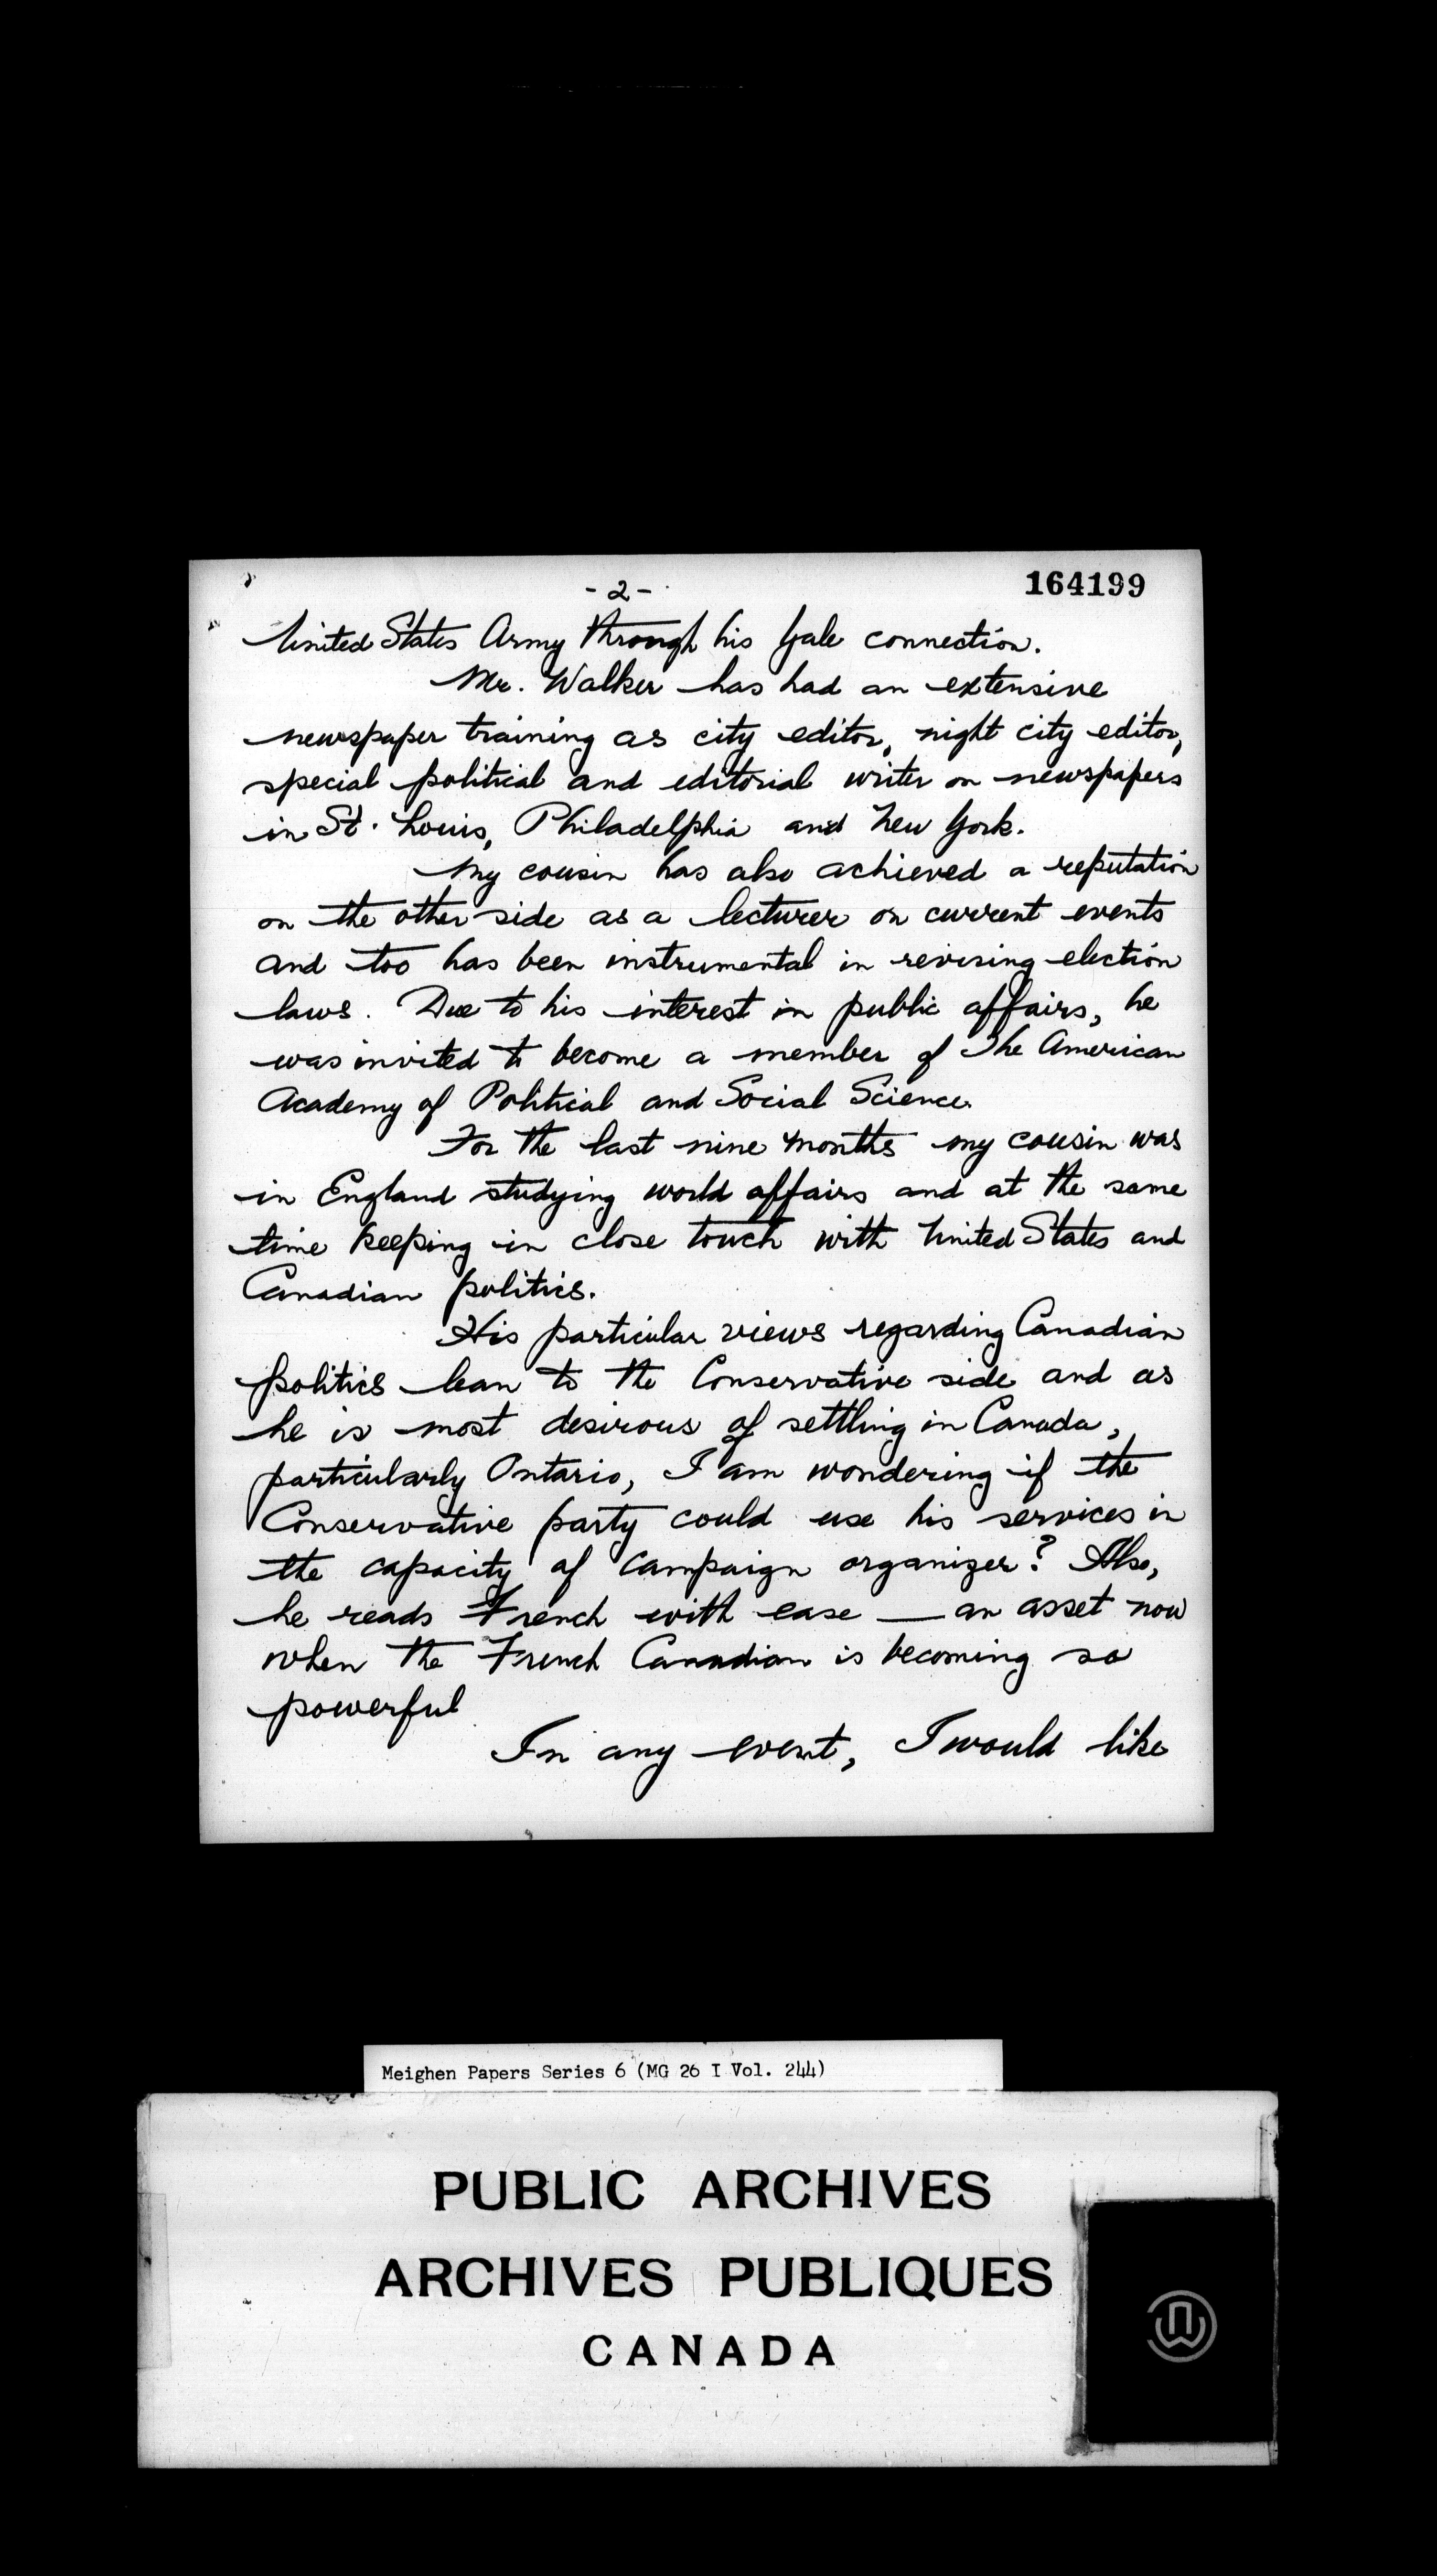 -2-
164199
United States Army through his Yale connection.
Mr. Walker has had an extensive
newspaper training as city editor, night city editor,
special political and editorial writer on newspapers
in St. Louis, Philadelphia and New York.
My cousin has also achieved a reputation
on the other side as a lecturer on current events
and too has been instrumental in revising election
laws. Due to his interest in public affairs, he
was invited to become a member of The American
Academy of Political and Social Science.
For the last nine months my cousin was
in England studying world affairs and at the same
time keeping in close touch with United States and
Canadian politics.
His particular views regarding Canadian
politics lean to the Conservative side and as
he is most desirous of settling in Canada,
particularly Ontario, I am wondering if the
Conservative party could use his services in
the capacity of campaign organizer? Also,
he reads French with ease — an asset now
when the French Canadian is becoming so
powerful
In any event, I would like
Meighen Papers Series 6 (MG 26 I Vol. 244)
PUBLIC ARCHIVES
ARCHIVES PUBLIQUES
CANADA